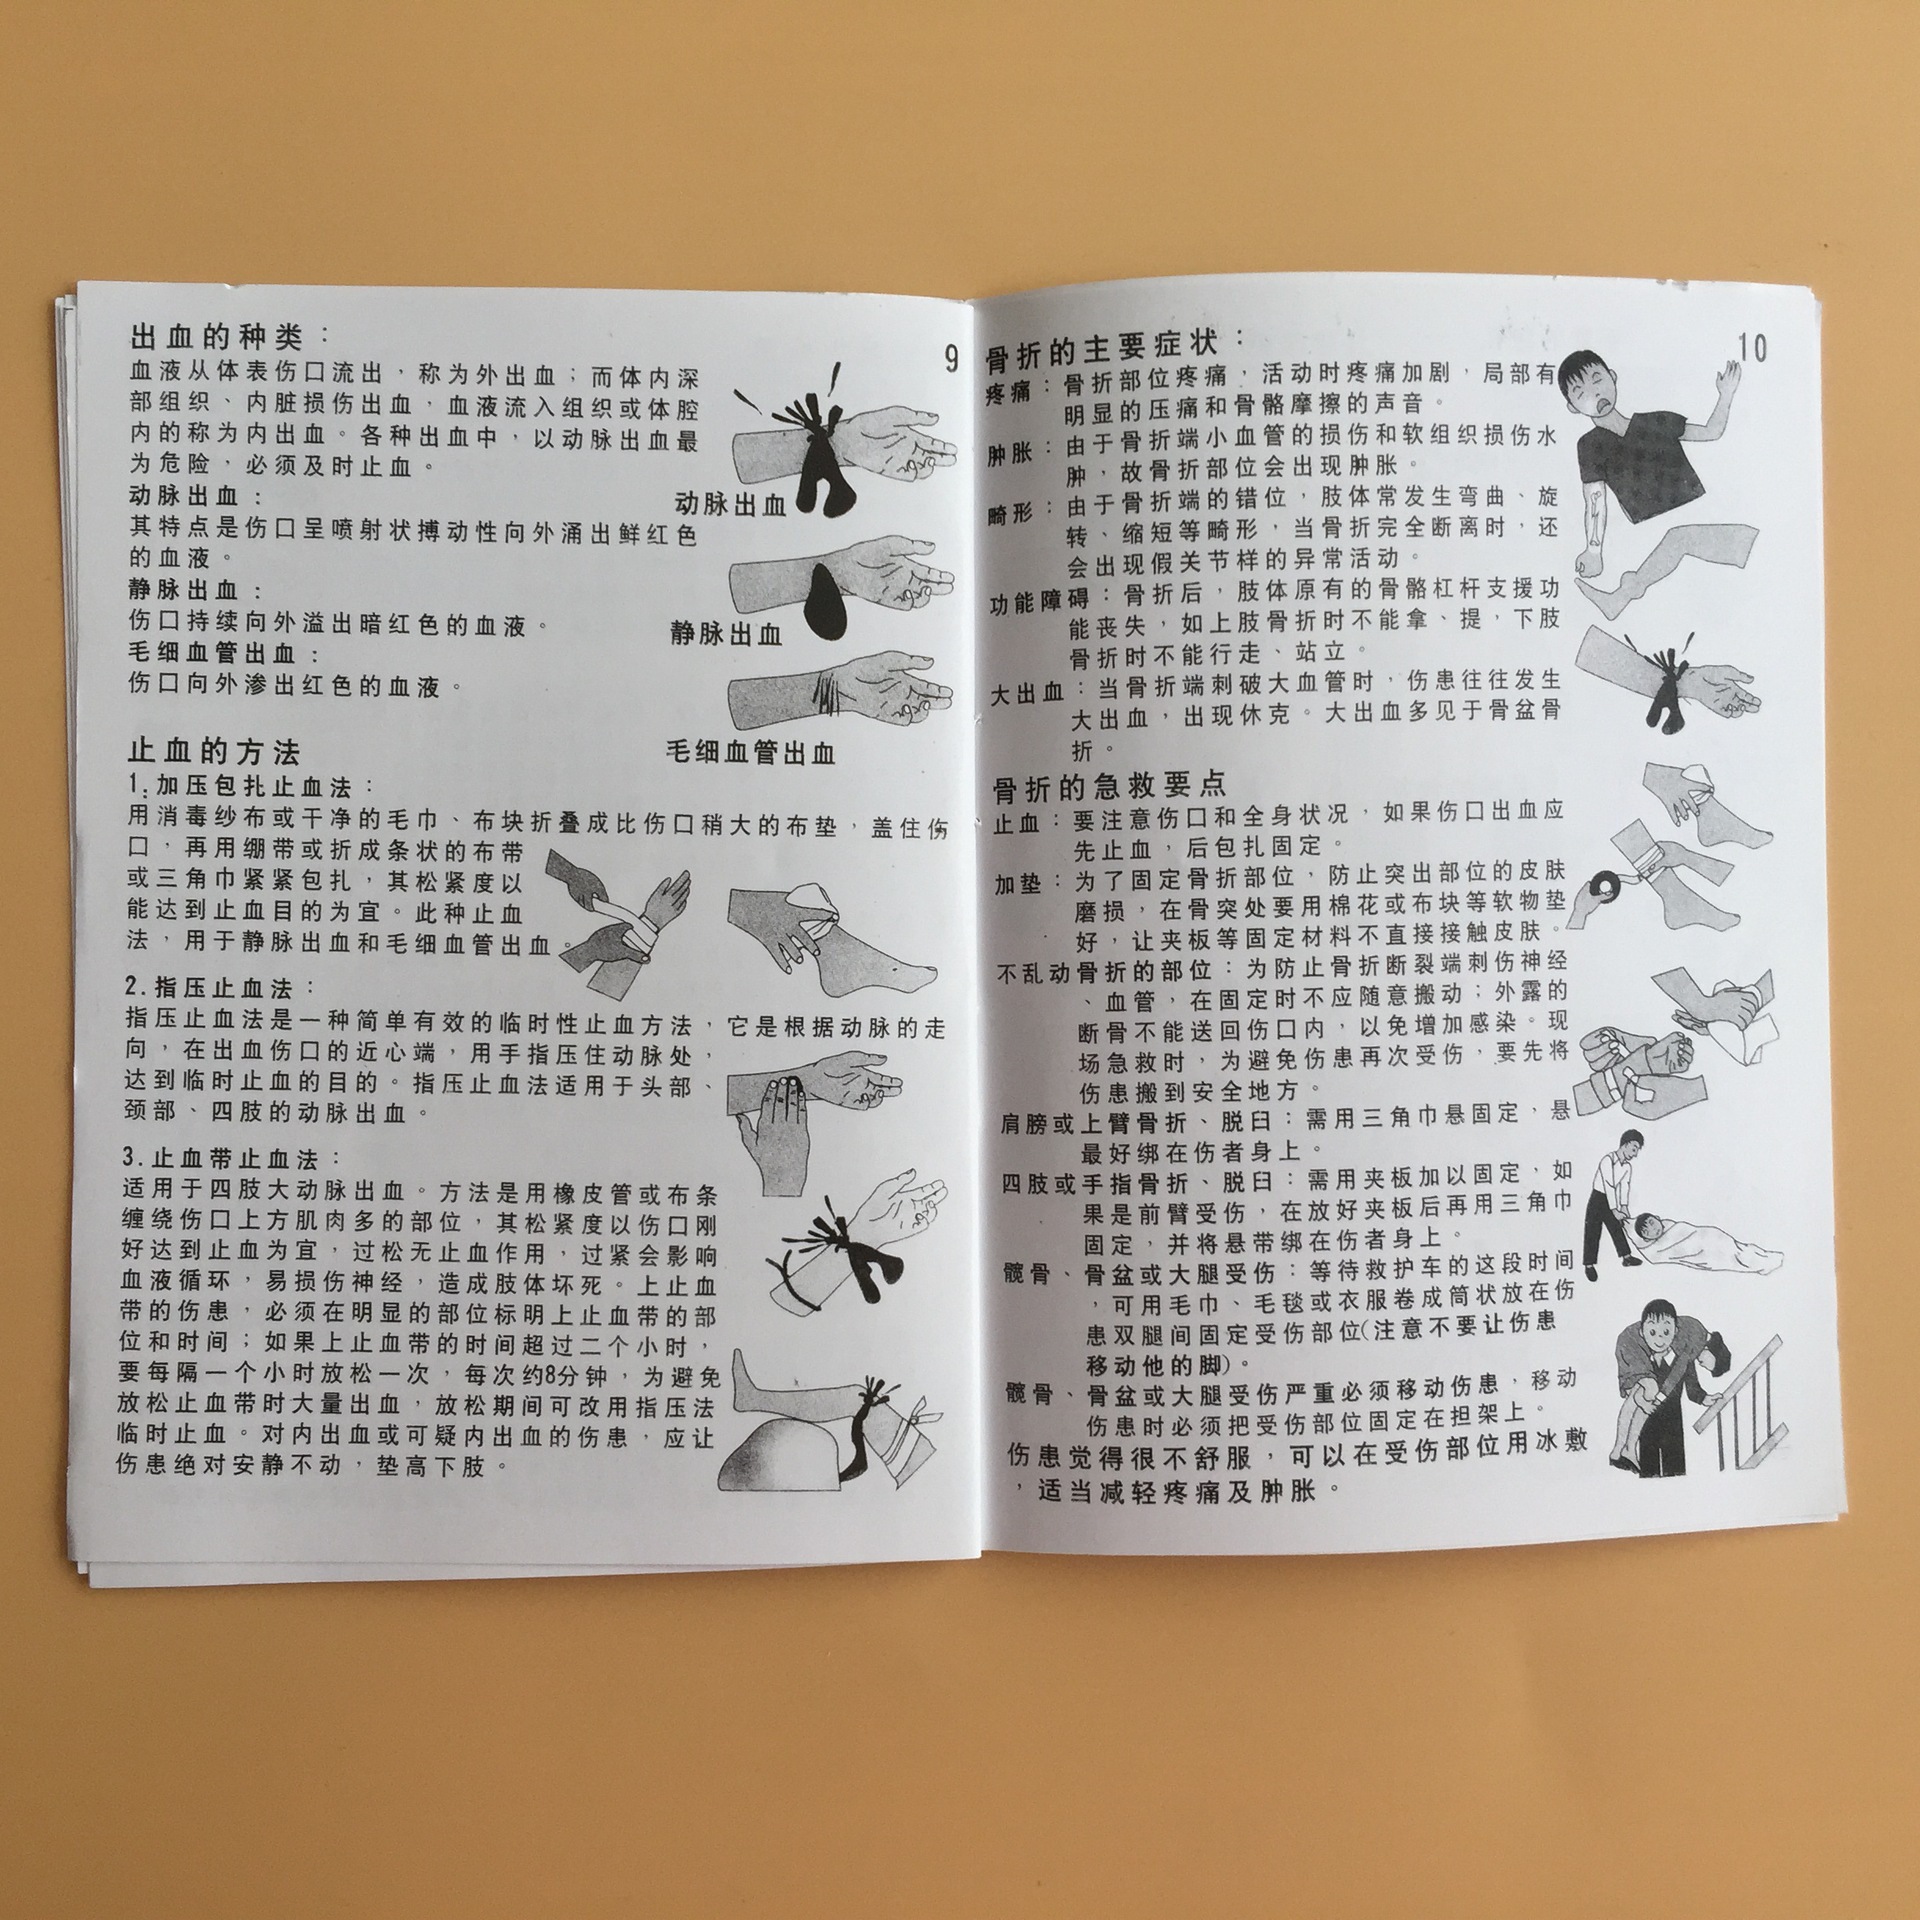 出血的种类：
9
血液从体表伤口流出，称为外出血；而体内深
部组织、内脏损伤出血，血液流入组织或体腔
内的称为内出血。各种出血中，以动脉出血最
为危险，必须及时止血。
动脉出血：
其特点是伤口呈喷射状搏动性向外涌出鲜红色
的血液。
静脉出血：
伤口持续向外溢出暗红色的血液。
毛细血管出血：
伤口向外渗出红色的血液。
动脉出血
静脉出血
毛细血管出血
止血的方法
1.加压包扎止血法：
用消毒纱布或干净的毛巾、布块折叠成比伤口稍大的布垫，盖住伤
口，再用绷带或折成条状的布带
或三角巾紧紧包扎，其松紧度以
能达到止血目的为宜。此种止血
法，用于静脉出血和毛细血管出血。
2.指压止血法：
指压止血法是一种简单有效的临时性止血方法，它是根据动脉的走
向，在出血伤口的近心端，用手指压住动脉处，
达到临时止血的目的。指压止血法适用于头部、
颈部、四肢的动脉出血。
3.止血带止血法：
适用于四肢大动脉出血。方法是用橡皮管或布条
缠绕伤口上方肌肉多的部位，其松紧度以伤口刚
好达到止血为宜，过松无止血作用，过紧会影响
血液循环，易损伤神经，造成肢体坏死。上止血
带的伤患，必须在明显的部位标明上止血带的部
位和时间；如果上止血带的时间超过二个小时，
要每隔一个小时放松一次，每次约8分钟，为避免
放松止血带时大量出血，放松期间可改用指压法
临时止血。对内出血或可疑内出血的伤患，应让
伤患绝对安静不动，垫高下肢。
骨折的主要症状：
10
疼痛：骨折部位疼痛，活动时疼痛加剧，局部有
明显的压痛和骨骼摩擦的声音。
肿胀：由于骨折端小血管的损伤和软组织损伤水
肿，故骨折部位会出现肿胀。
畸形：由于骨折端的错位，肢体常发生弯曲、旋
转、缩短等畸形，当骨折完全断离时，还
会出现假关节样的异常活动。
功能障碍：骨折后，肢体原有的骨骼杠杆支援功
能丧失，如上肢骨折时不能拿、提，下肢
骨折时不能行走、站立。
大出血：当骨折端刺破大血管时，伤患往往发生
大出血，出现休克。大出血多见于骨盆骨
折。
骨折的急救要点
止血：要注意伤口和全身状况，如果伤口出血应
先止血，后包扎固定。
加垫：为了固定骨折部位，防止突出部位的皮肤
磨损，在骨突处要用棉花或布块等软物垫
好，让夹板等固定材料不直接接触皮肤。
不乱动骨折的部位：为防止骨折断裂端刺伤神经
、血管，在固定时不应随意搬动；外露的
断骨不能送回伤口内，以免增加感染。现
场急救时，为避免伤患再次受伤，要先将
伤患搬到安全地方。
肩膀或上臂骨折、脱臼：需用三角巾悬固定，悬
最好绑在伤者身上。
四肢或手指骨折、脱臼：需用夹板加以固定，如
果是前臂受伤，在放好夹板后再用三角巾
固定，并将悬带绑在伤者身上。
髋骨、骨盆或大腿受伤：等待救护车的这段时间
，可用毛巾、毛毯或衣服卷成筒状放在伤
患双腿间固定受伤部位(注意不要让伤患
移动他的脚)。
髋骨、骨盆或大腿受伤严重必须移动伤患，移动
伤患时必须把受伤部位固定在担架上。
伤患觉得很不舒服，可以在受伤部位用冰敷
，适当减轻疼痛及肿胀。